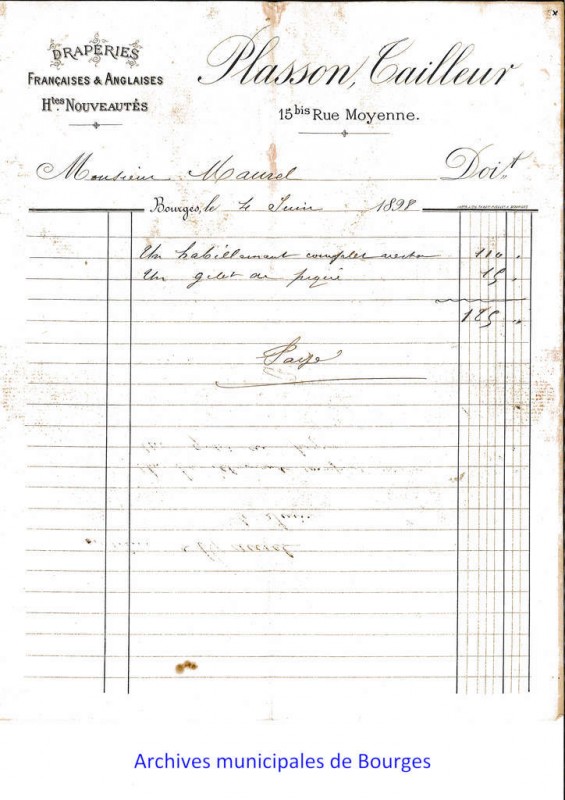 DRAPERIES
FRANÇAISES & ANGLAISES
Htes NOUVEAUTÉS
Plasson, Tailleur
15bis Rue Moyenne.
Monsieur Maurel Doit
Bourges, le 4 Juin 1898
Un habillement complet veston 110 "
Un gilet de piqué 15 "
125 "
Payé
Archives municipales de Bourges